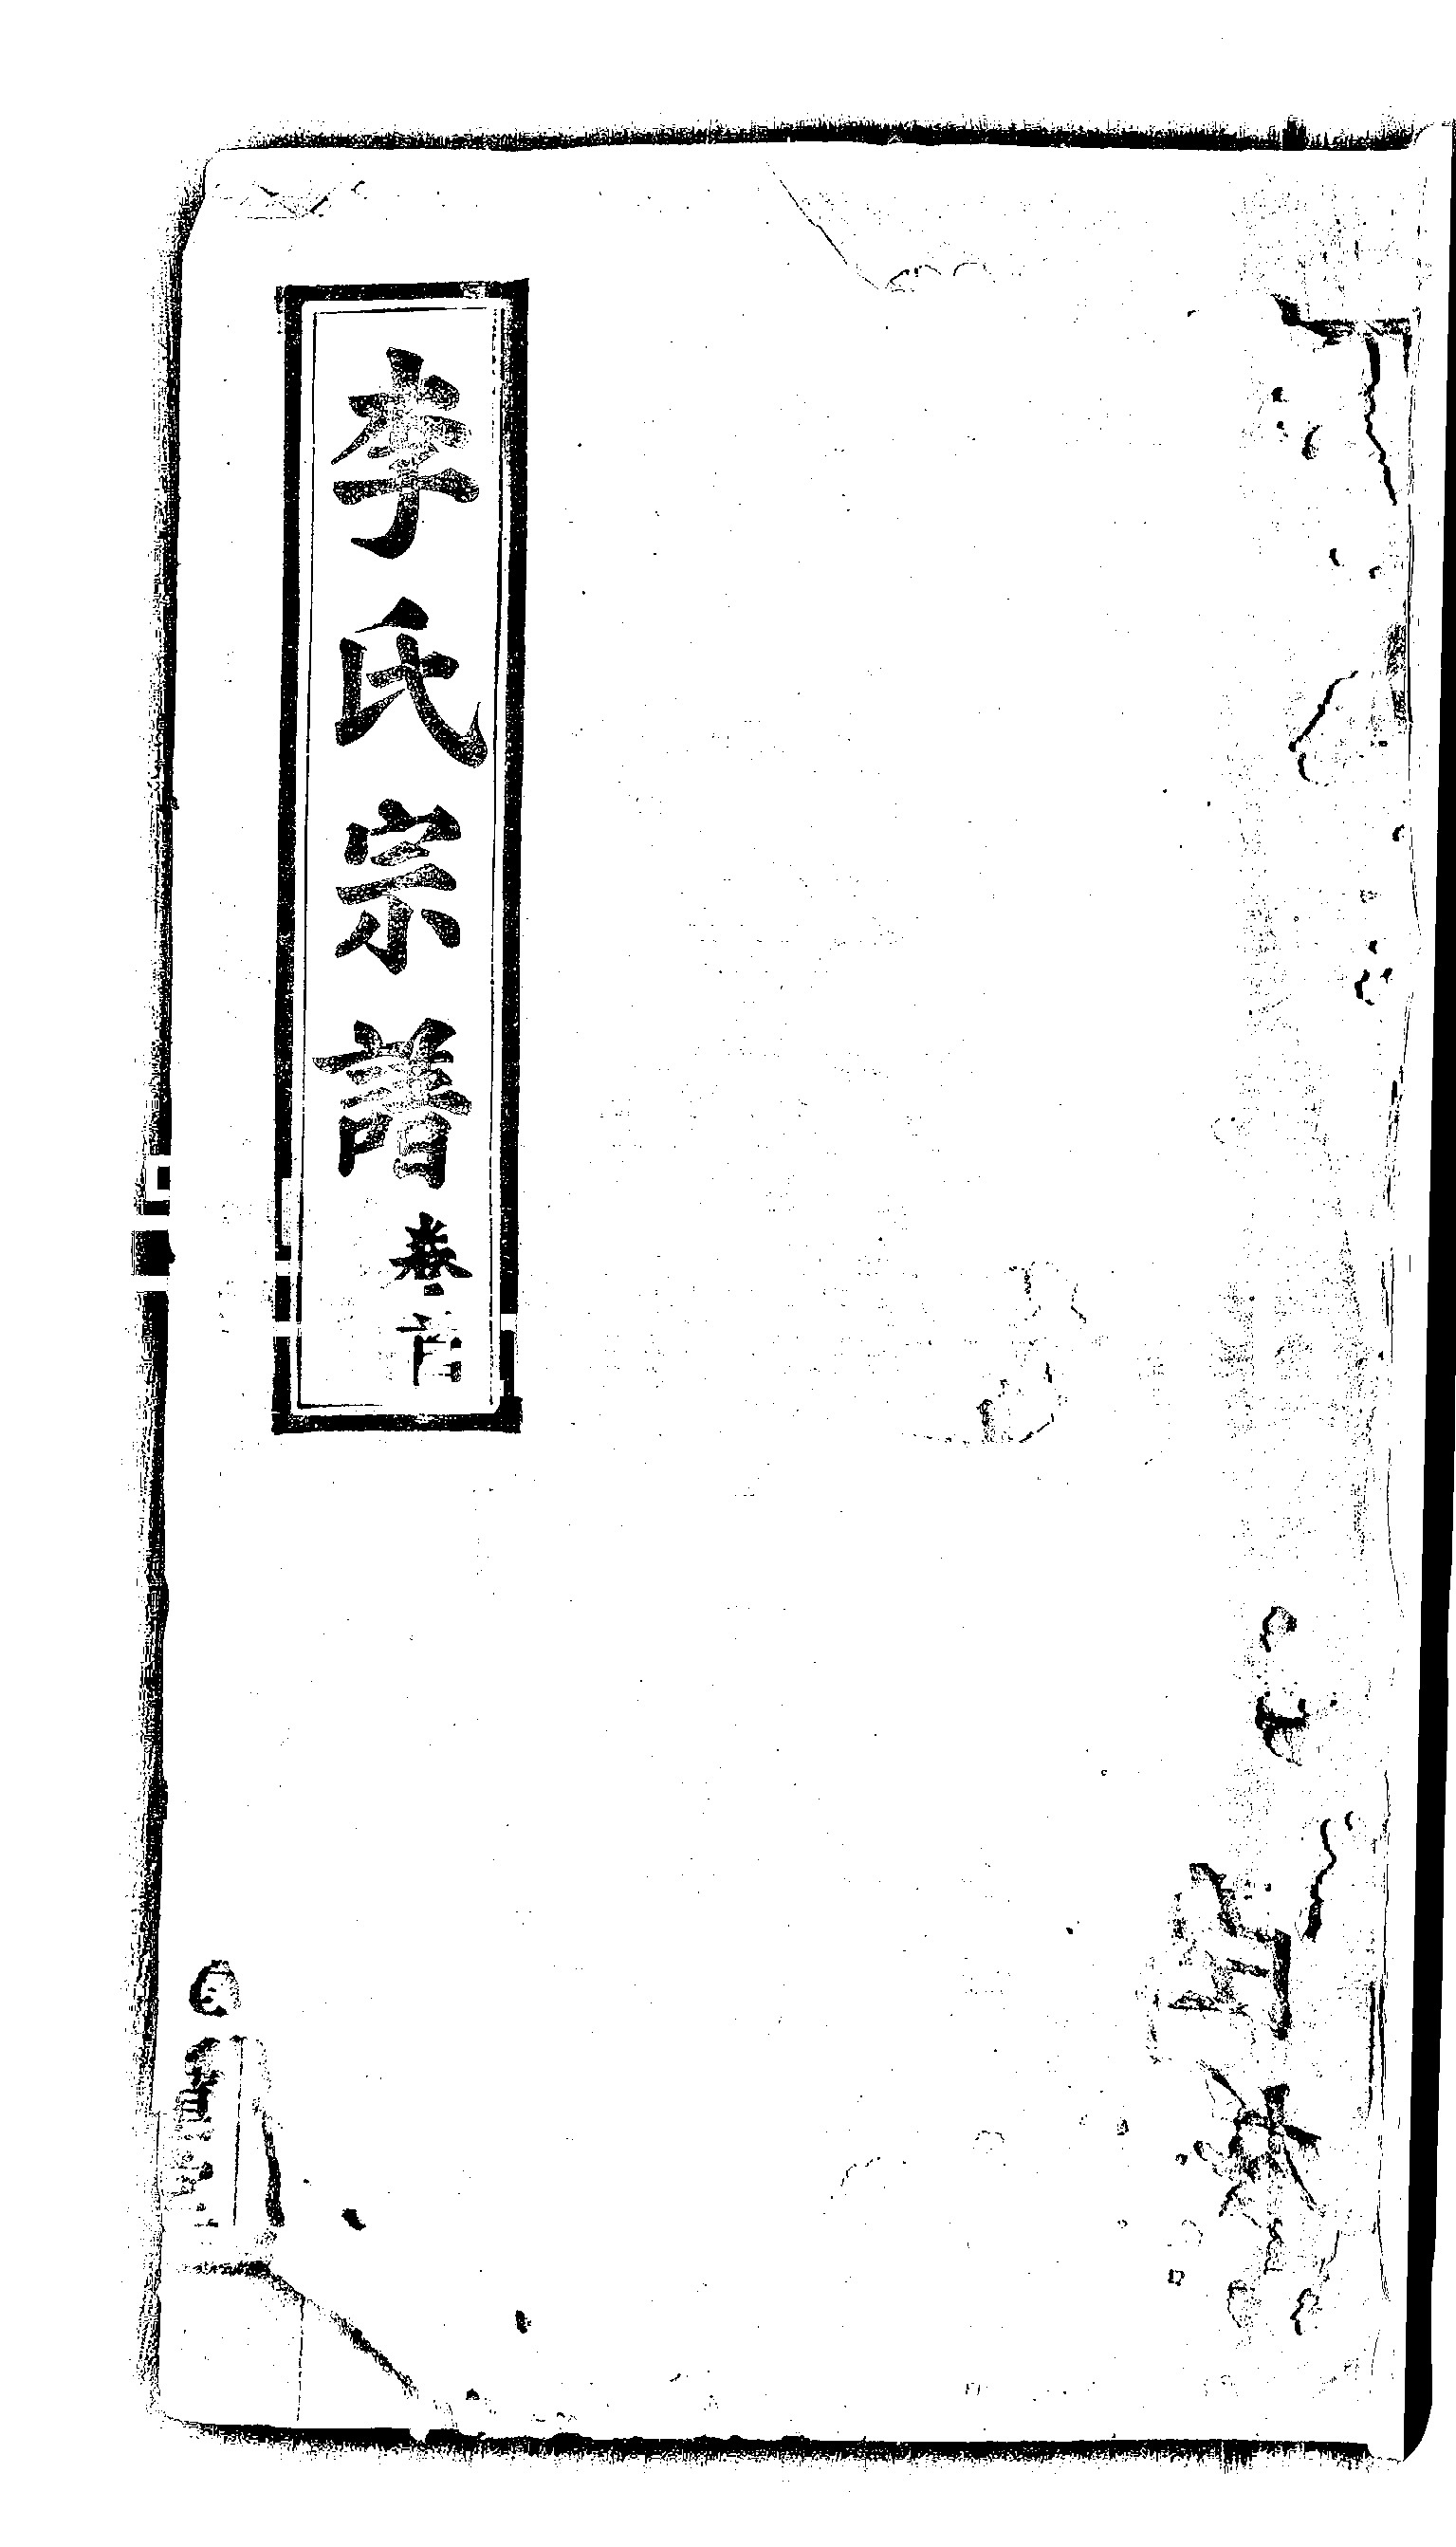 李氏宗譜
卷首